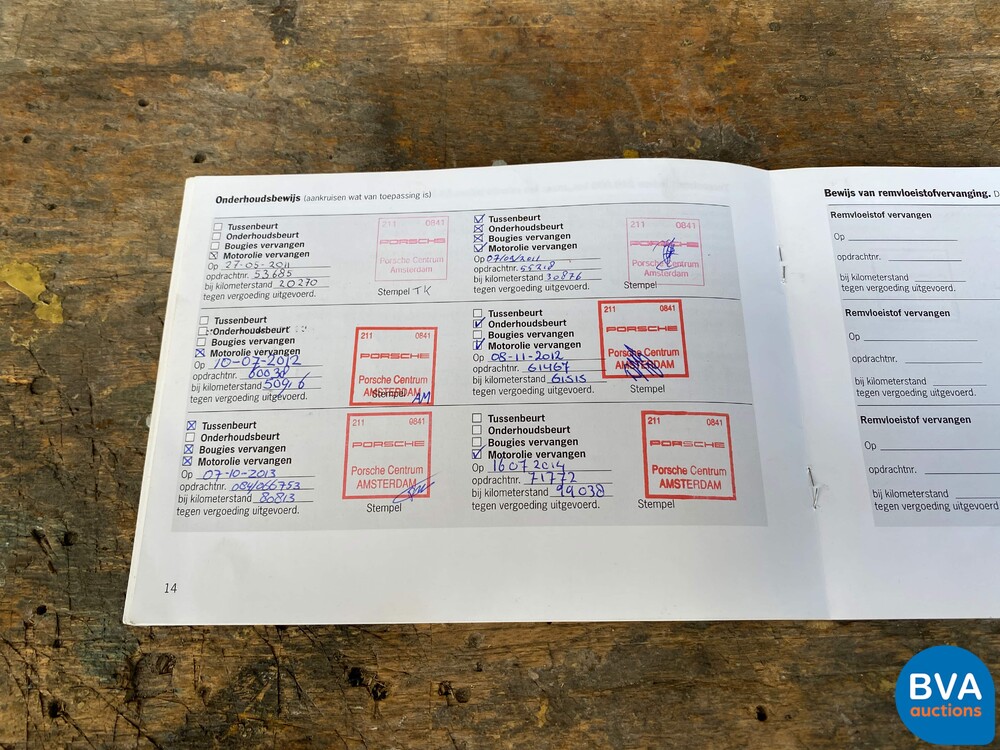 Onderhoudsbewijs (aankruisen wat van toepassing is)
Tussenbeurt
Onderhoudsbeurt
Bougies vervangen
Motorolie vervangen
Op 27-05-2011
opdrachtnr. 53685
bij kilometerstand 20270
tegen vergoeding uitgevoerd.
211 0841
PORSCHE
Porsche Centrum
Amsterdam
Stempel TK
Tussenbeurt
Onderhoudsbeurt
Bougies vervangen
Motorolie vervangen
Op
opdrachtnr. 55218
bij kilometerstand 30876
tegen vergoeding uitgevoerd.
211 0841
PORSCHE
Porsche Centrum
Amsterdam
Stempel
Tussenbeurt
Onderhoudsbeurt
Bougies vervangen
Motorolie vervangen
Op 10-07-2012
opdrachtnr.
bij kilometerstand
tegen vergoeding uitgevoerd.
211 0841
PORSCHE
Porsche Centrum
AMSTERDAM
Stempel AM
Tussenbeurt
Onderhoudsbeurt
Bougies vervangen
Motorolie vervangen
Op 08-11-2012
opdrachtnr. 61467
bij kilometerstand 61515
tegen vergoeding uitgevoerd.
211 0841
PORSCHE
Porsche Centrum
AMSTERDAM
Stempel
Tussenbeurt
Onderhoudsbeurt
Bougies vervangen
Motorolie vervangen
Op 07-10-2013
opdrachtnr. 084066753
bij kilometerstand 80813
tegen vergoeding uitgevoerd.
211 0841
PORSCHE
Porsche Centrum
AMSTERDAM
Stempel
Tussenbeurt
Onderhoudsbeurt
Bougies vervangen
Motorolie vervangen
Op 16 07 2014
opdrachtnr. 71772
bij kilometerstand 99038
tegen vergoeding uitgevoerd.
211 0841
PORSCHE
Porsche Centrum
AMSTERDAM
Stempel
14
Bewijs van remvloeistofvervanging. D
Remvloeistof vervangen
Op
opdrachtnr.
bij kilometerstand
tegen vergoeding uitgevoerd.
Remvloeistof vervangen
Op
opdrachtnr.
bij kilometerstand
tegen vergoeding uitgevoerd.
Remvloeistof vervangen
Op
opdrachtnr.
bij kilometerstand
tegen vergoeding uitgevoerd
BVA
auctions